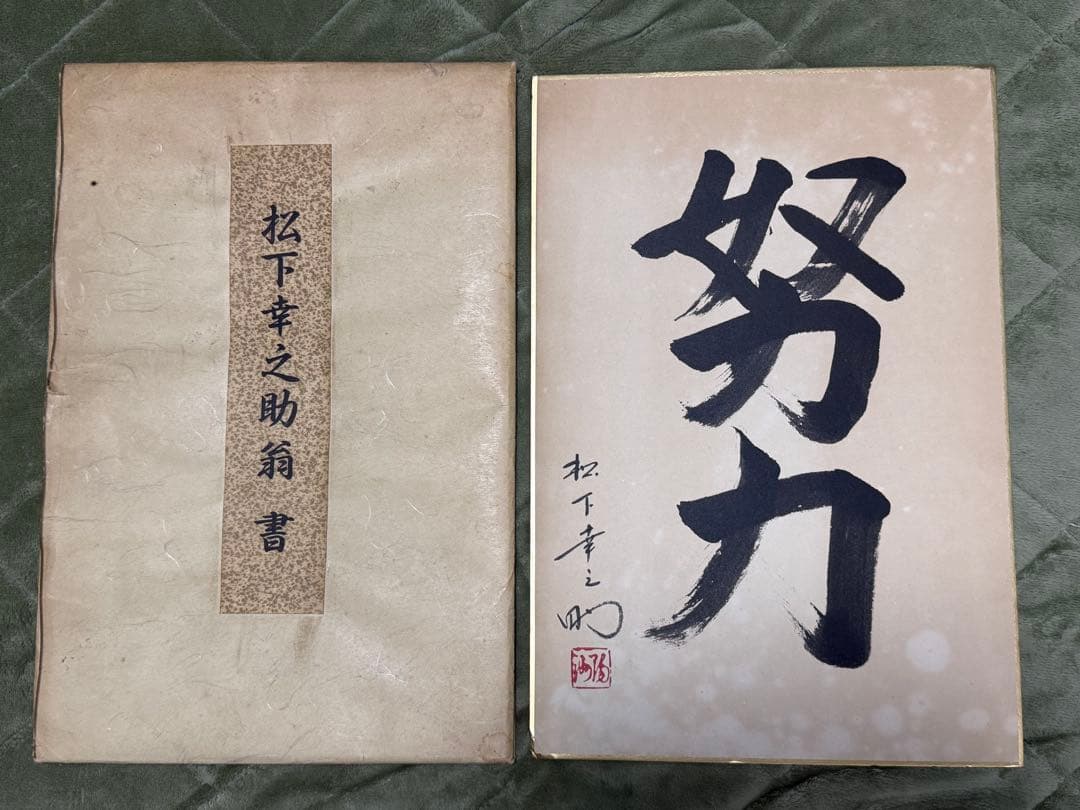 松下幸之助翁 書
努力
松下幸之助